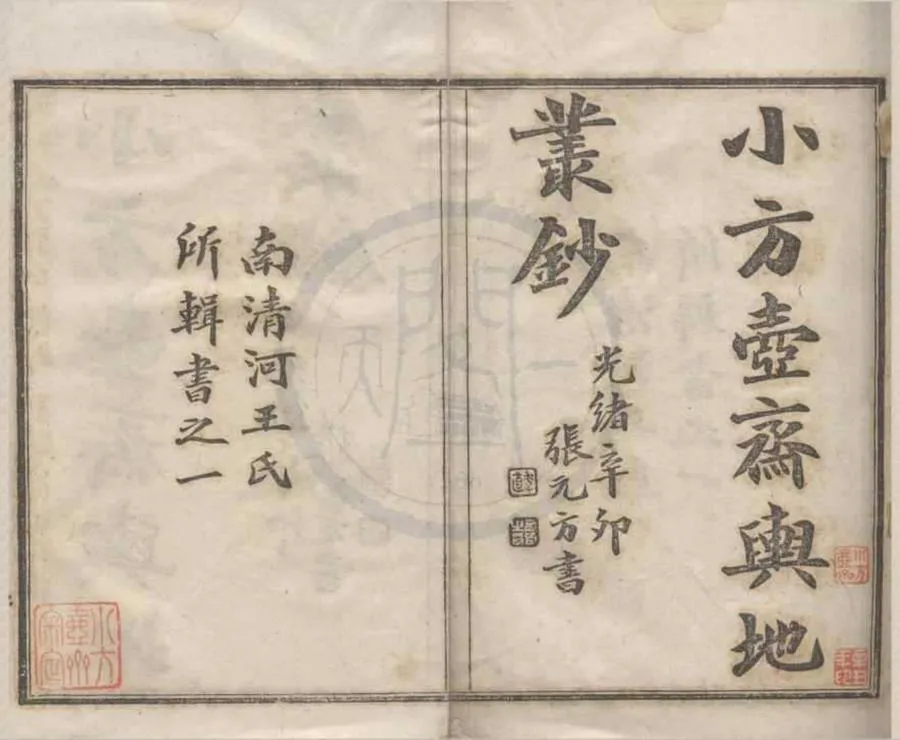 小方壺齋輿地
叢鈔
光緒辛卯
張元方書
南清河王氏
所輯書之一